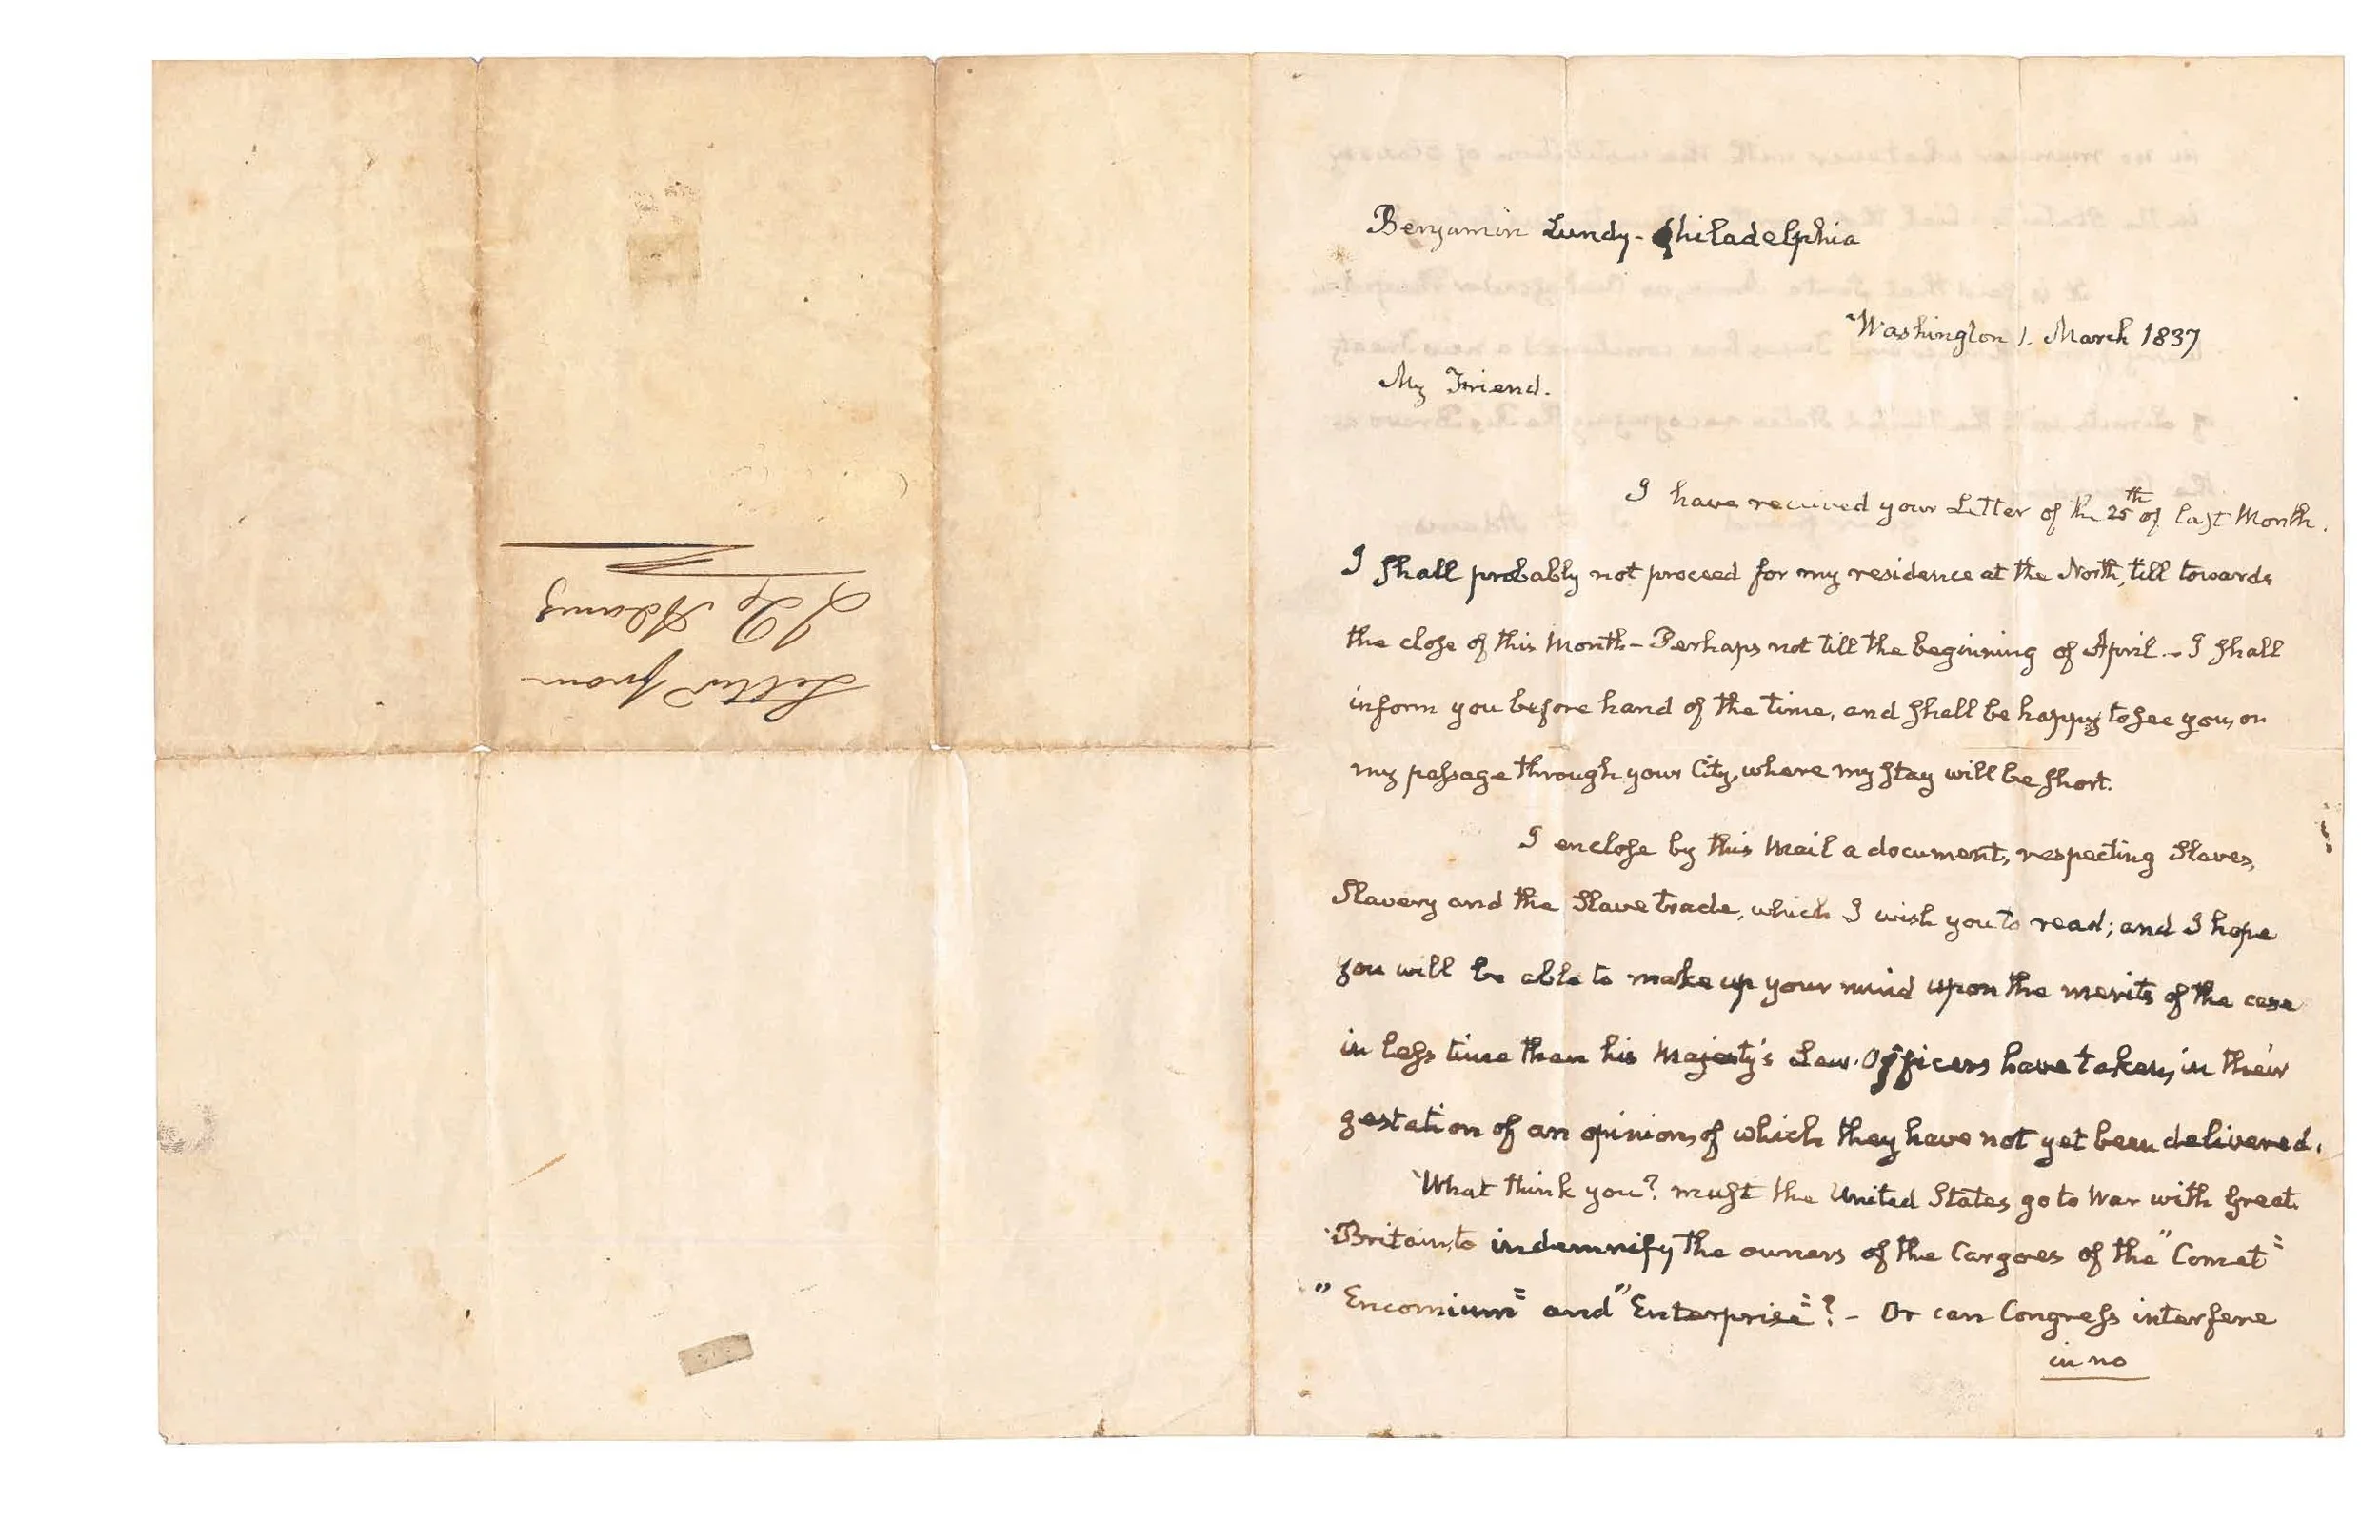 Letter from
J Q Adams
Benjamin Lundy - Philadelphia
Washington 1. March 1837
My Friend.
I have received your Letter of the 25th of last Month.
I shall probably not proceed for my residence at the North, till towards
the close of this Month - Perhaps not till the beginning of April - I shall
inform you before hand of the time, and shall be happy to see you, on
my passage through your City, where my stay will be short.
I enclose by this Mail a document, respecting Slaves,
Slavery and the Slave trade, which I wish you to read; and I hope
you will be able to make up your mind upon the merits of the case
in less time than his Majesty's Law-Officers have taken, in their
gestation of an opinion, of which they have not yet been delivered.
What think you? must the United States, go to War with Great
Britain, to indemnify the owners of the Cargoes of the "Comet"
"Encomium" and "Enterprise"? - Or can Congress interfere
in no